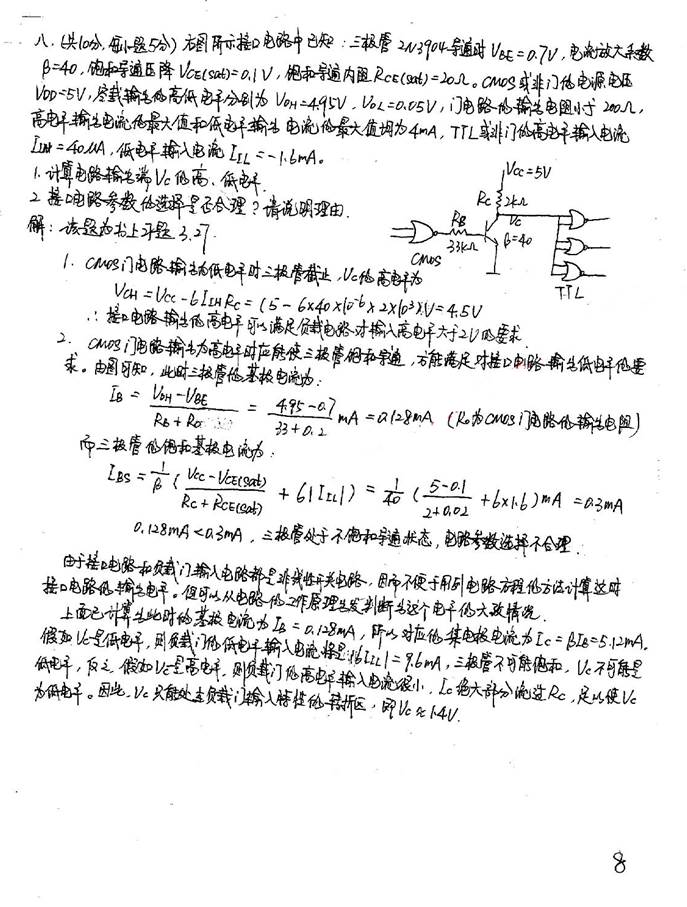 八.(共10分,每小题5分) 右图所示接口电路中已知:三极管 2N3904导通时VBE=0.7V,电流放大系数
β=40,饱和导通压降VCE(sat)=0.1V,饱和导通内阻RCE(sat)=20Ω。CMOS或非门的电源电压
VDD=5V,空载输出的高低电平分别为VOH=4.95V,VOL=0.05V,门电路的输出电阻小于200Ω,
高电平输出电流的最大值和低电平输出电流的最大值均为4mA,TTL或非门的高电平输入电流
IIH=40μA,低电平输入电流IIL=-1.6mA。
1.计算电路输出端VC的高、低电平.
2.接口电路参数的选择是否合理?请说明理由.
VCC=5V
RC 2kΩ
VC
RB
33kΩ
β=40
CMOS
TTL
解:该题为书上习题3.27.
1. CMOS门电路输出为低电平时三极管截止,VC的高电平为
VCH=VCC-6IIHRC=(5-6×40×10⁻⁶×2×10³)V=4.5V
∴接口电路输出的高电平可以满足负载电路对输入高电平大于2V的要求.
2. CMOS门电路输出为高电平时应能使三极管饱和导通,方能满足对接口电路输出低电平的要
求。由图可知,此时三极管的基极电流为:
IB=(VOH-VBE)/(RB+Ro)=(4.95-0.7)/(33+0.2)mA=0.128mA (Ro为CMOS门电路的输出电阻)
而三极管的饱和基极电流为:
IBS=1/β((VCC-VCE(sat))/(RC+RCE(sat))+6|IIL|)=1/40((5-0.1)/(2+0.02)+6×1.6)mA=0.3mA
0.128mA<0.3mA,三极管处于不饱和导通状态,电路参数选择不合理.
由于接口电路和负载门输入电路都是非线性开关电路,因而不便于用列电路方程的方法计算这时
接口电路的输出电平。但可以从电路的工作原理出发判断出这个电平的大致情况.
上面已计算出此时的基极电流为IB=0.128mA,所以对应的集电极电流为IC=βIB=5.12mA.
假如VC是低电平,则负载门的低电平输入电流将是6|IIL|=9.6mA,三极管不可能饱和,VC不可能是
低电平,反之,假如VC是高电平,则负载门的高电平输入电流很小,IC绝大部分流过RC,足以使VC
为低电平。因此,VC只能处在负载门输入特性的转折区,即VC≈1.4V.
8